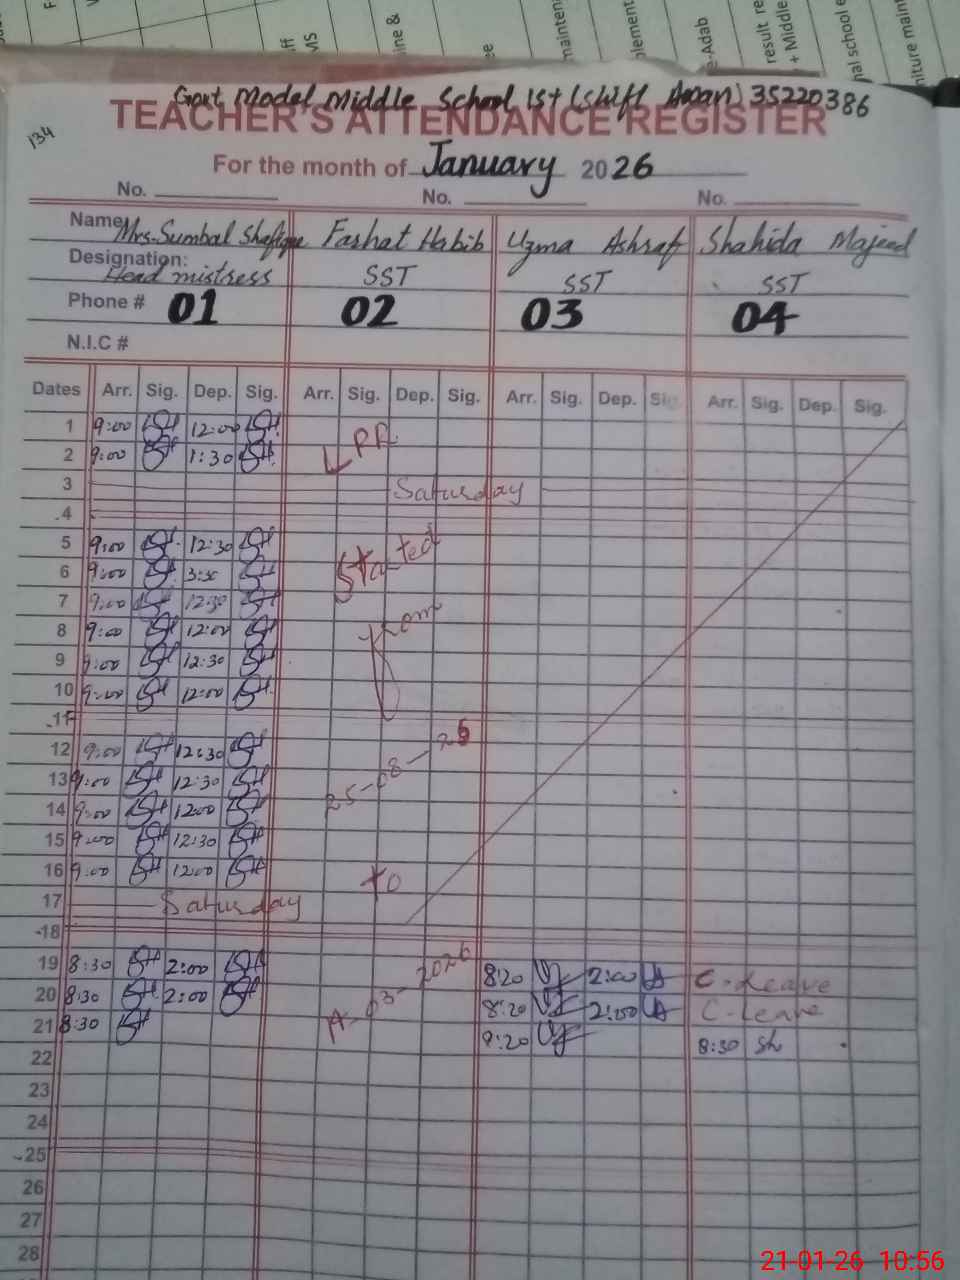 Govt Model Middle School 1st (Shift 35220386
TEACHER'S ATTENDANCE REGISTER
134
For the month of January 2026
No. No. No.
Name Mrs. Sumbal Shafique Farhat Habib Uzma Ashraf Shahida Majeed
Designation: Head mistress SST SST SST
Phone # 01 02 03 04
N.I.C #
Dates Arr. Sig. Dep. Sig. Arr. Sig. Dep. Sig. Arr. Sig. Dep. Sig. Arr. Sig. Dep. Sig.
1 9:00 12:00
2 9:00 1:30 LPR
3 Saturday
4
5 9:00 12:30 Started
6 9:00 3:30
7 9:00 12:30
8 9:00 12:00 from
9 9:00 12:30
10 9:00 12:00
11
12 9:00 12:30
13 9:00 12:30 25-08-25
14 9:00 12:00
15 9:00 12:30
16 9:00 12:00 to
17 Saturday
18
19 8:30 2:00 8:20 2:00 C-Leave
20 8:30 2:00 03-2026 8:20 2:00 C-Leave
21 8:30 8:30 Sh
22
23
24
25
26
27
28
21-01-26 10:56